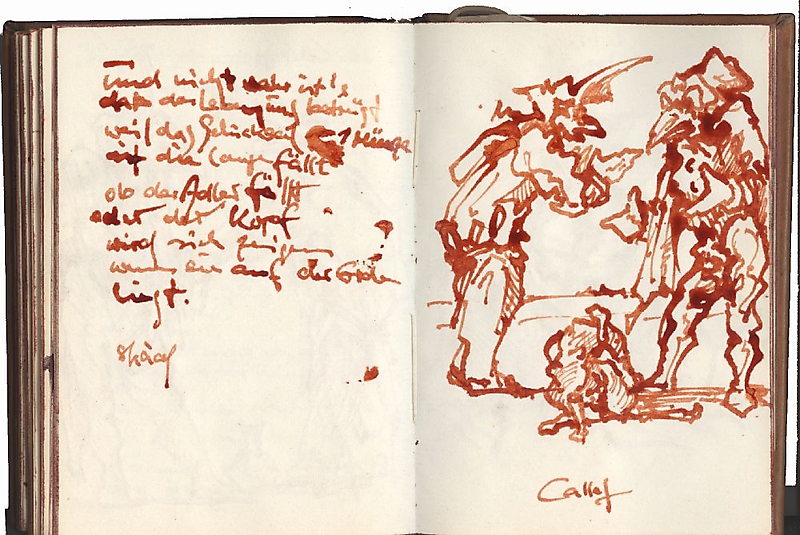 Und nicht wahr ist's
daß das Leben uns betrügt
weil das 1 Münze
die fällt
ob der Adler fällt
oder der Kopf
wird sich zeigen
wenn sie auf der Erden
liegt.
Callot